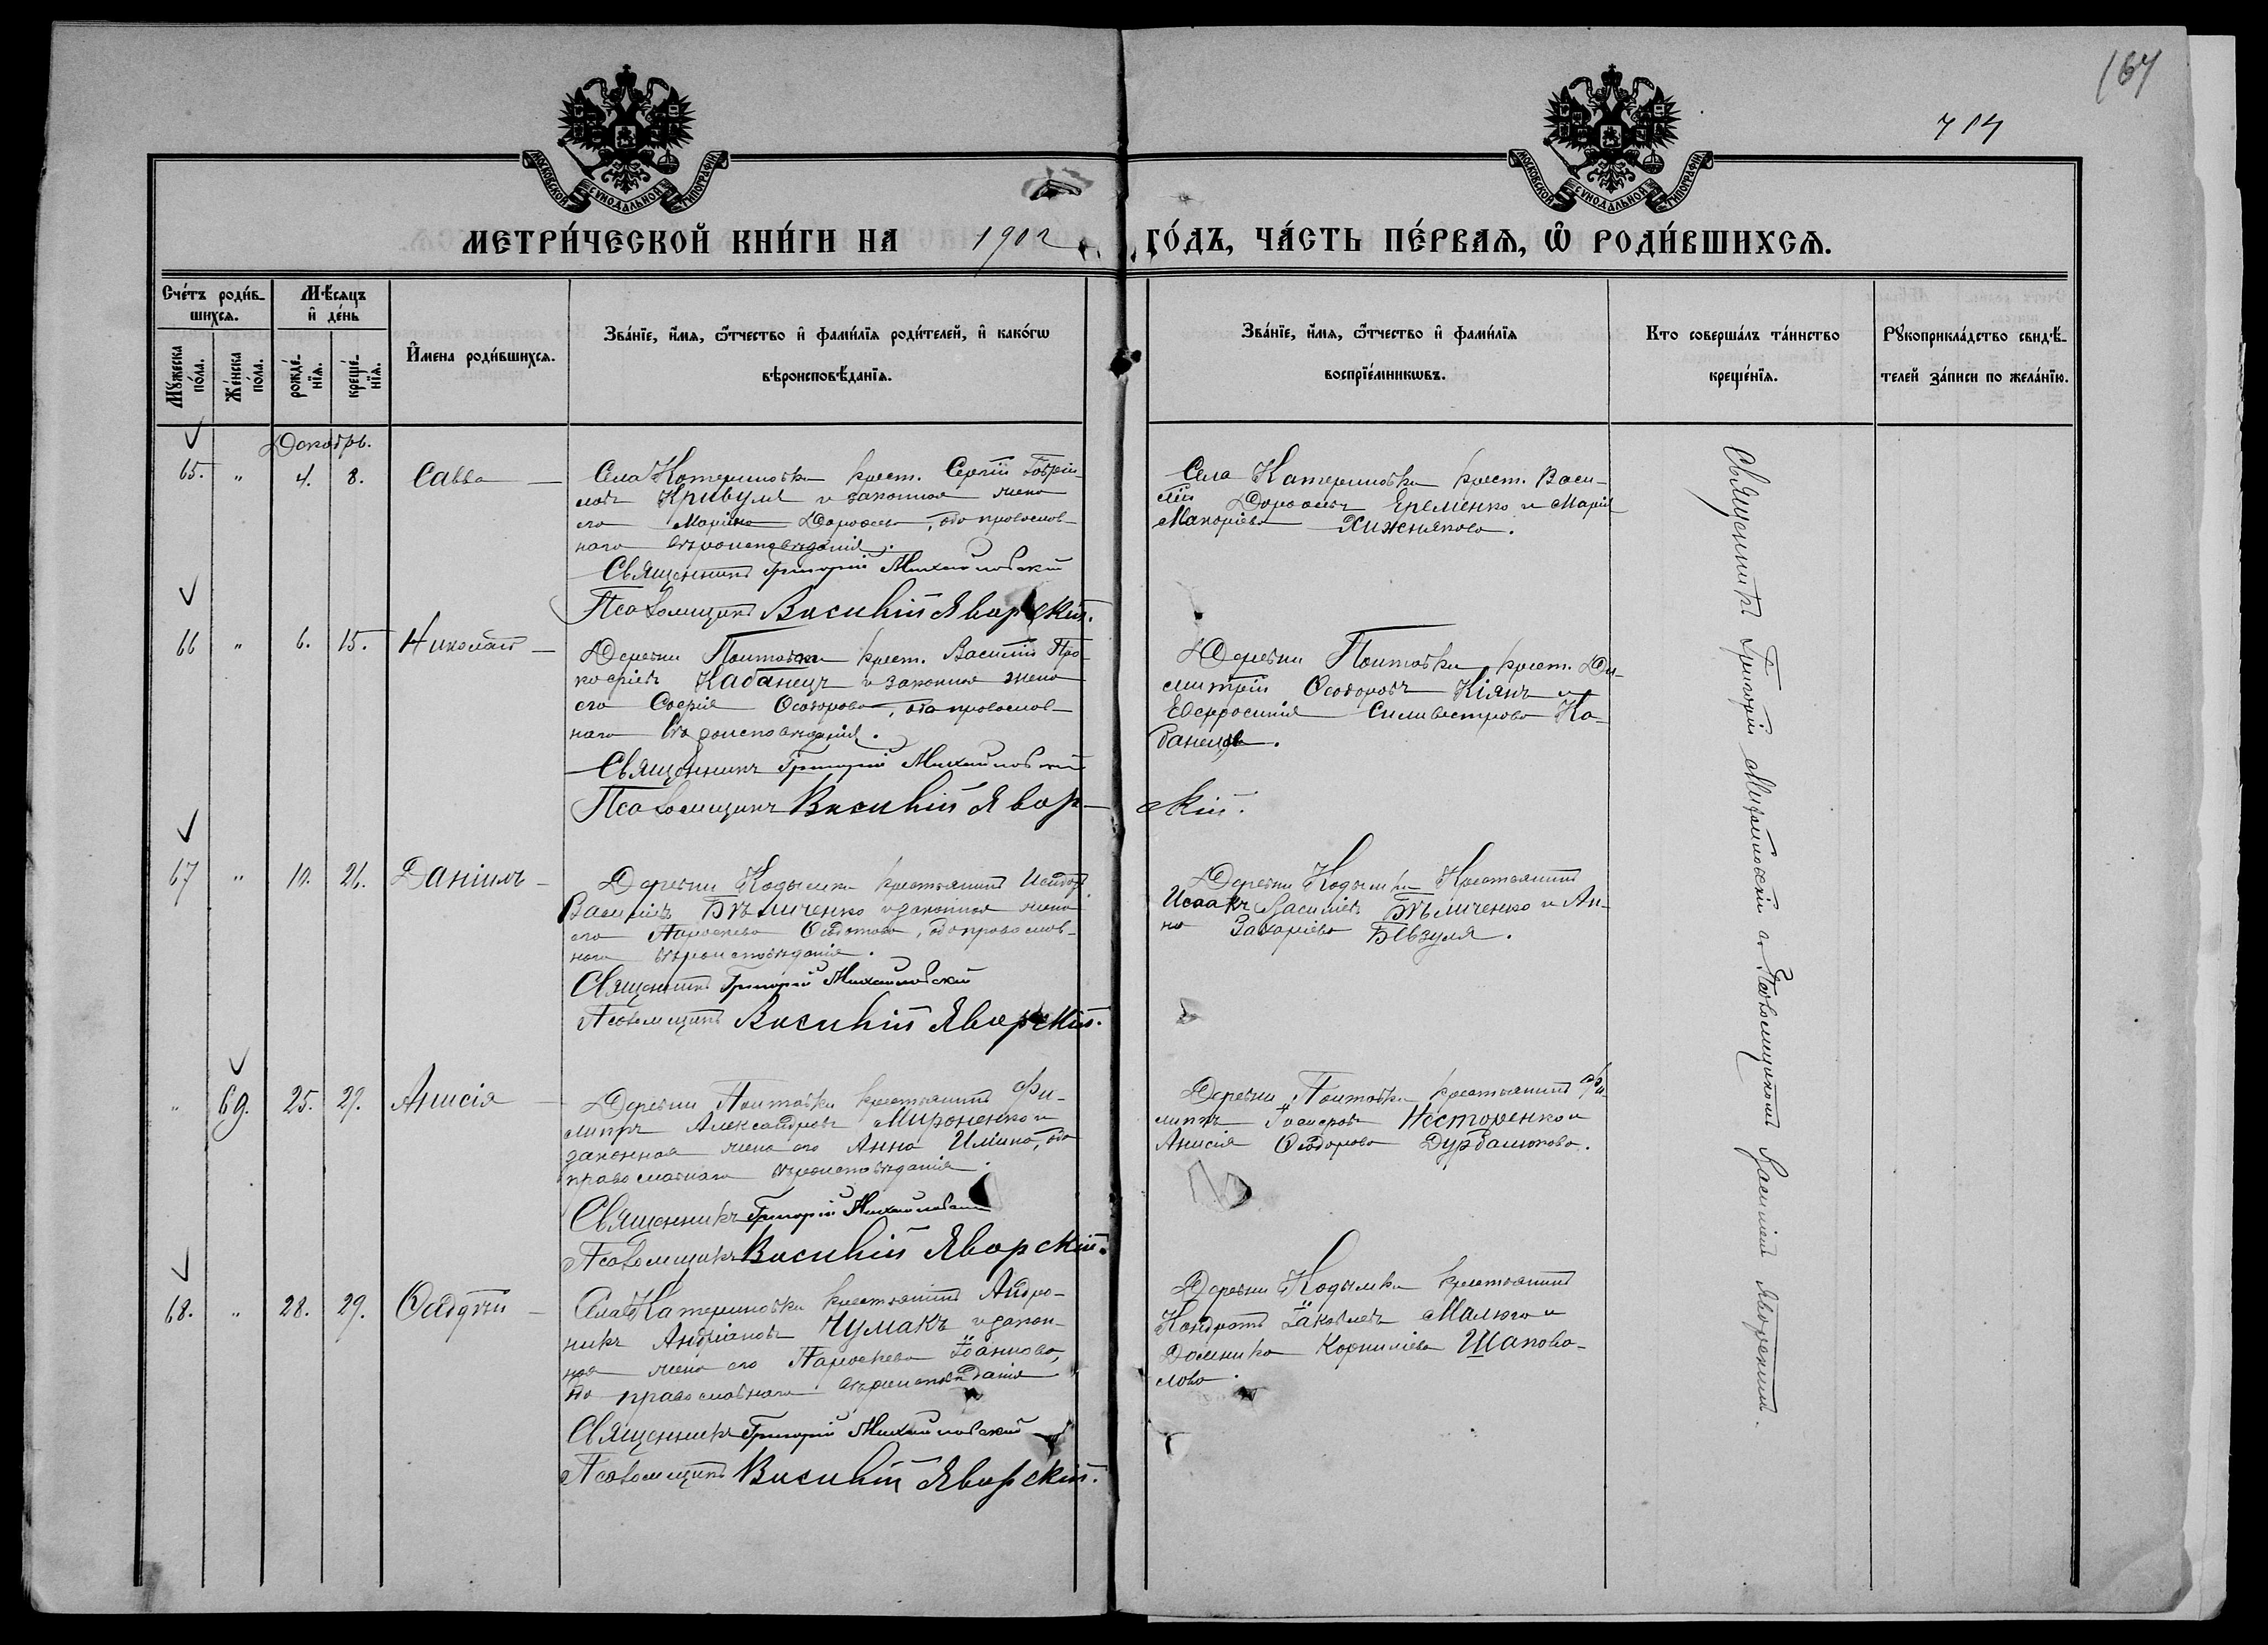 167
714
МОСКОВСКОЙ СѴНОДАЛЬНОЙ ТИПОГРАФІИ
МОСКОВСКОЙ СѴНОДАЛЬНОЙ ТИПОГРАФІИ
МЕТРИ́ЧЕСКОЙ КНИ́ГИ НА 1902 ГО́ДЪ, ЧА́СТЬ ПЕ́РВАѦ, Ѡ҆ РОДИ́ВШИХСѦ.
Сче́тъ роди́в-
шихсѧ.
Мꙋ́жеска по́ла.
Же́нска по́ла.
Мѣ́сѧцъ
и҆ де́нь
рожде́-
нїѧ.
креще́-
нїѧ.
И҆мена роди́вшихсѧ.
Зва́нїе, и҆́мѧ, ѻ҆́тчество и҆ фами́лїѧ роди́телей, и҆ како́гѡ
вѣроисповѣ́данїѧ.
Зва́нїе, и҆́мѧ, ѻ҆́тчество и҆ фами́лїѧ
воспрїе́мникѡвъ.
Кто соверша́лъ та́инство
креще́нїѧ.
Рꙋкоприкла́дство свидѣ́-
телей за́писи по жела́нїю.
Декабрь.
65. " 4. 8. Савва
Села Катериновки крест. Сергій Гаврі-
ловъ Кривуля и законная жена
его Марина Дороѳева, оба православ-
наго вѣроисповѣданія.
Священникъ Григорій Михайловскій
Псаломщикъ Василій Яворскій.
Села Катериновки крест. Васи-
лій Дороѳеевъ Еременко и Марія
Макаріева Хижнякова.
66 " 6. 15. Николай
Деревни Полтавки крест. Василій Про-
кофіевъ Кабанецъ и законная жена
его Софія Ѳеодорова, оба православ-
наго вѣроисповѣданія.
Священникъ Григорій Михайловскій
Псаломщикъ Василій Яворскій.
Деревни Полтавки крест. Ди-
митрій Ѳеодоровъ Кіянъ и
Евфросинія Сильвестрова Ка-
банецъ.
67 " 10. 26. Даніилъ
Деревни Кодымки крестьянинъ Исидоръ
Васильевъ Бѣличенко и законная жена
его Параскева Ѳеодотова, оба православ-
наго вѣроисповѣданія.
Священникъ Григорій Михайловскій
Псаломщикъ Василій Яворскій.
Деревни Кодымки Крестьянинъ
Исаакъ Василіевъ Бѣличенко и Ан-
на Захаріева Бевзуля.
" 69. 25. 29. Анисія
Деревни Полтавки крестьянинъ Фи-
липпъ Александровъ Мироненко и
законная жена его Анна Иліина, оба
православнаго вѣроисповѣданія.
Священникъ Григорій Михайловскій
Псаломщикъ Василій Яворскій.
Деревни Полтавки крестьянинъ Фи-
липпъ Іосифовъ Несторенко и
Анисія Ѳеодорова Дурбалюкова.
68. " 28. 29. Ѳаддей
Села Катериновки крестьянинъ Андро-
никъ Андріановъ Чумакъ и закон-
ная жена его Параскева Іоаннова,
оба православнаго вѣроисповѣданія
Священникъ Григорій Михайловскій
Псаломщикъ Василій Яворскій.
Деревни Кодымки крестьянинъ
Кондратъ Іаковлевъ Малюга и
Домника Корниліева Шапова-
лова.
Священникъ Григорій Михайловскій съ Псаломщикомъ Василіемъ Яворскимъ.